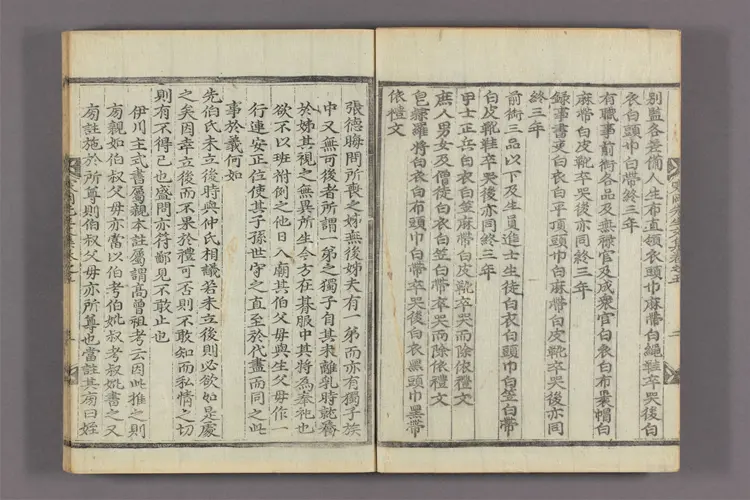 別監各差備人生布直領衣頭巾麻帶白繩鞋卒哭後白
衣白頭巾白帶終三年
有職事前銜各品及無祿官及成衆官白衣白布裹帽白
麻帶白皮靴卒哭後亦同終三年
錄事書吏白衣白平頂頭巾白麻帶白皮靴卒哭後亦同
終三年
前銜三品以下及生員進士生徒白衣白頭巾白笠白帶
白皮靴鞋卒哭後亦同終三年
甲士正兵白衣白笠麻帶白皮靴卒哭而除依禮文
庶人男女及僧徒白衣白笠白帶卒哭而除依禮文
皂隷羅將白衣白布頭巾白帶卒哭後白衣黑頭巾黑帶
依禮文
張德晦問所喪之姊無後姊夫有一弟而亦有獨子族
中又無可後者所謂一弟之獨子自其未離乳時就養
於姊其視之無異所生今方在朞服中其將為奉祀也
欲不以班祔例之他日入廟其伯父母與生父母作一
行連安正位使其子孫世守之直至於代盡而同之此
事於義何如
先伯氏未立後時與仲氏相議若未立後則必欲如是處
之矣因幸立後而不果於禮可否則不敢知而私情之切
則有不得已也盛問亦符鄙見不敢止也
伊川主式書屬親本註屬謂高曾祖考云因此推之則
旁親如伯叔父母亦當以伯考伯妣叔考叔妣書之又
旁註施於所尊則伯叔父母亦所尊也當註其旁曰姪